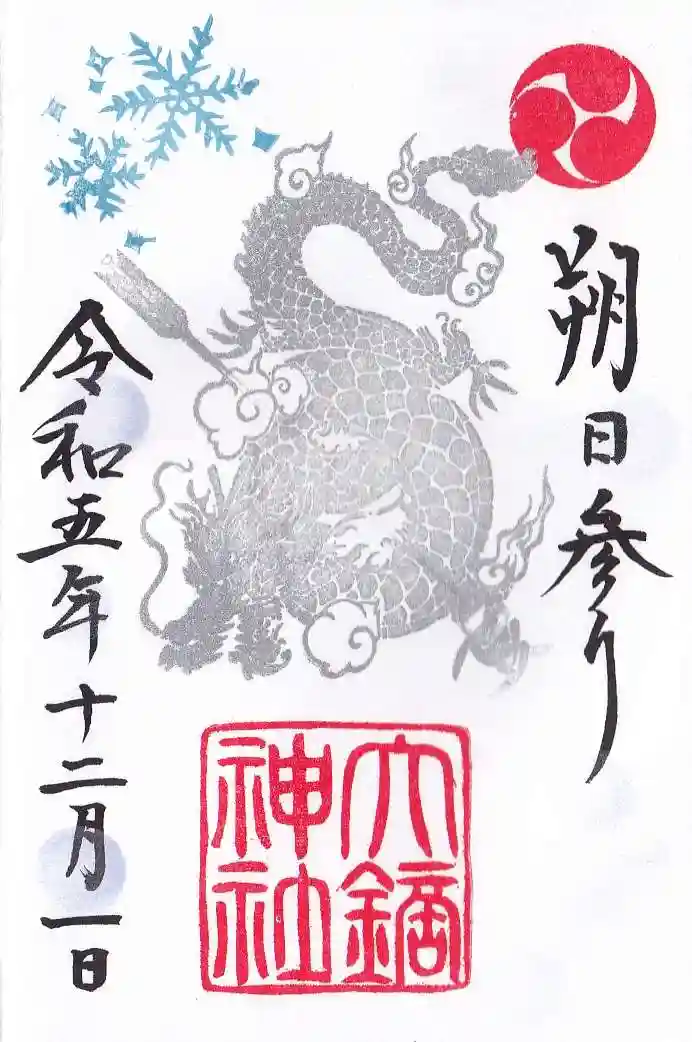 朔日参り
大鏑
神社
令和五年十二月一日